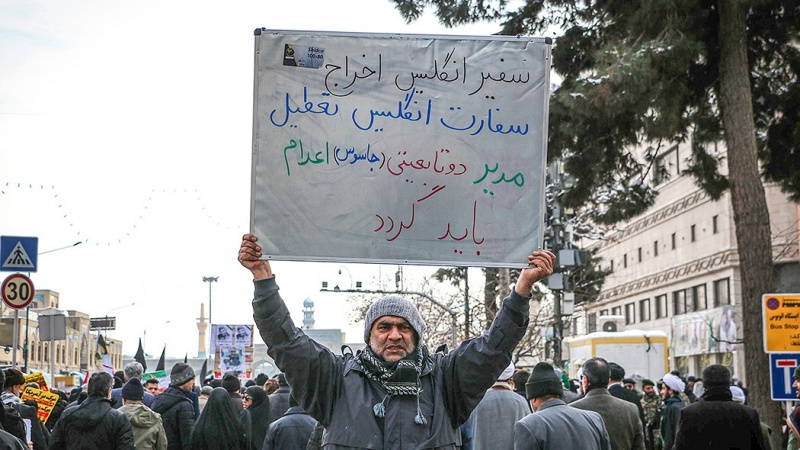 سفیر انگلیس اخراج
سفارت انگلیس تعطیل
مدیر دوتابعیتی (جاسوس) اعدام
باید گردد
100x80
30
Bus Stop
ایستگاه اتوبوس